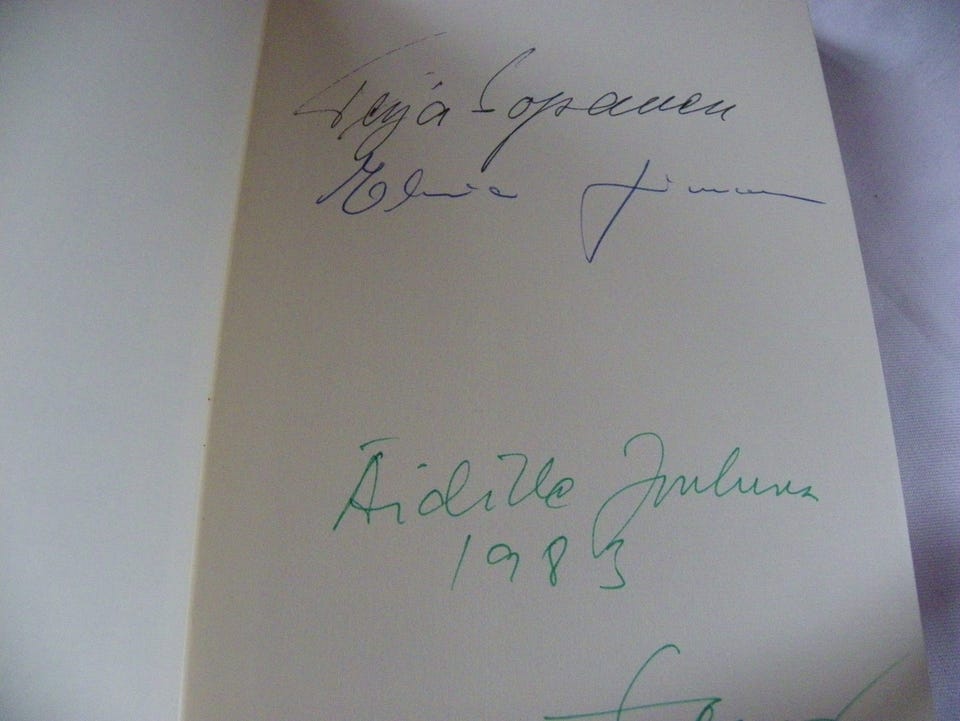 Teija Sopanen
Elina
Äidille Jouluna
1983